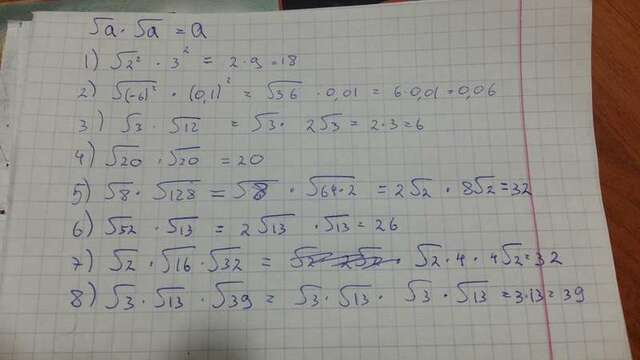 √a · √a = a
1) √2² · 3² = 2·9=18
2) √(-6)² · (0,1)² = √36 · 0,01 = 6·0,01=0,06
3) √3 · √12 = √3 · 2√3 = 2·3=6
4) √20 · √20 = 20
5) √8 · √128 = √8 · √64·2 = 2√2 · 8√2=32
6) √52 · √13 = 2√13 · √13 = 26
7) √2 · √16 · √32 = √2 · 4 · 4√2=32
8) √3 · √13 · √39 = √3 · √13 · √3 · √13 = 3·13= 39